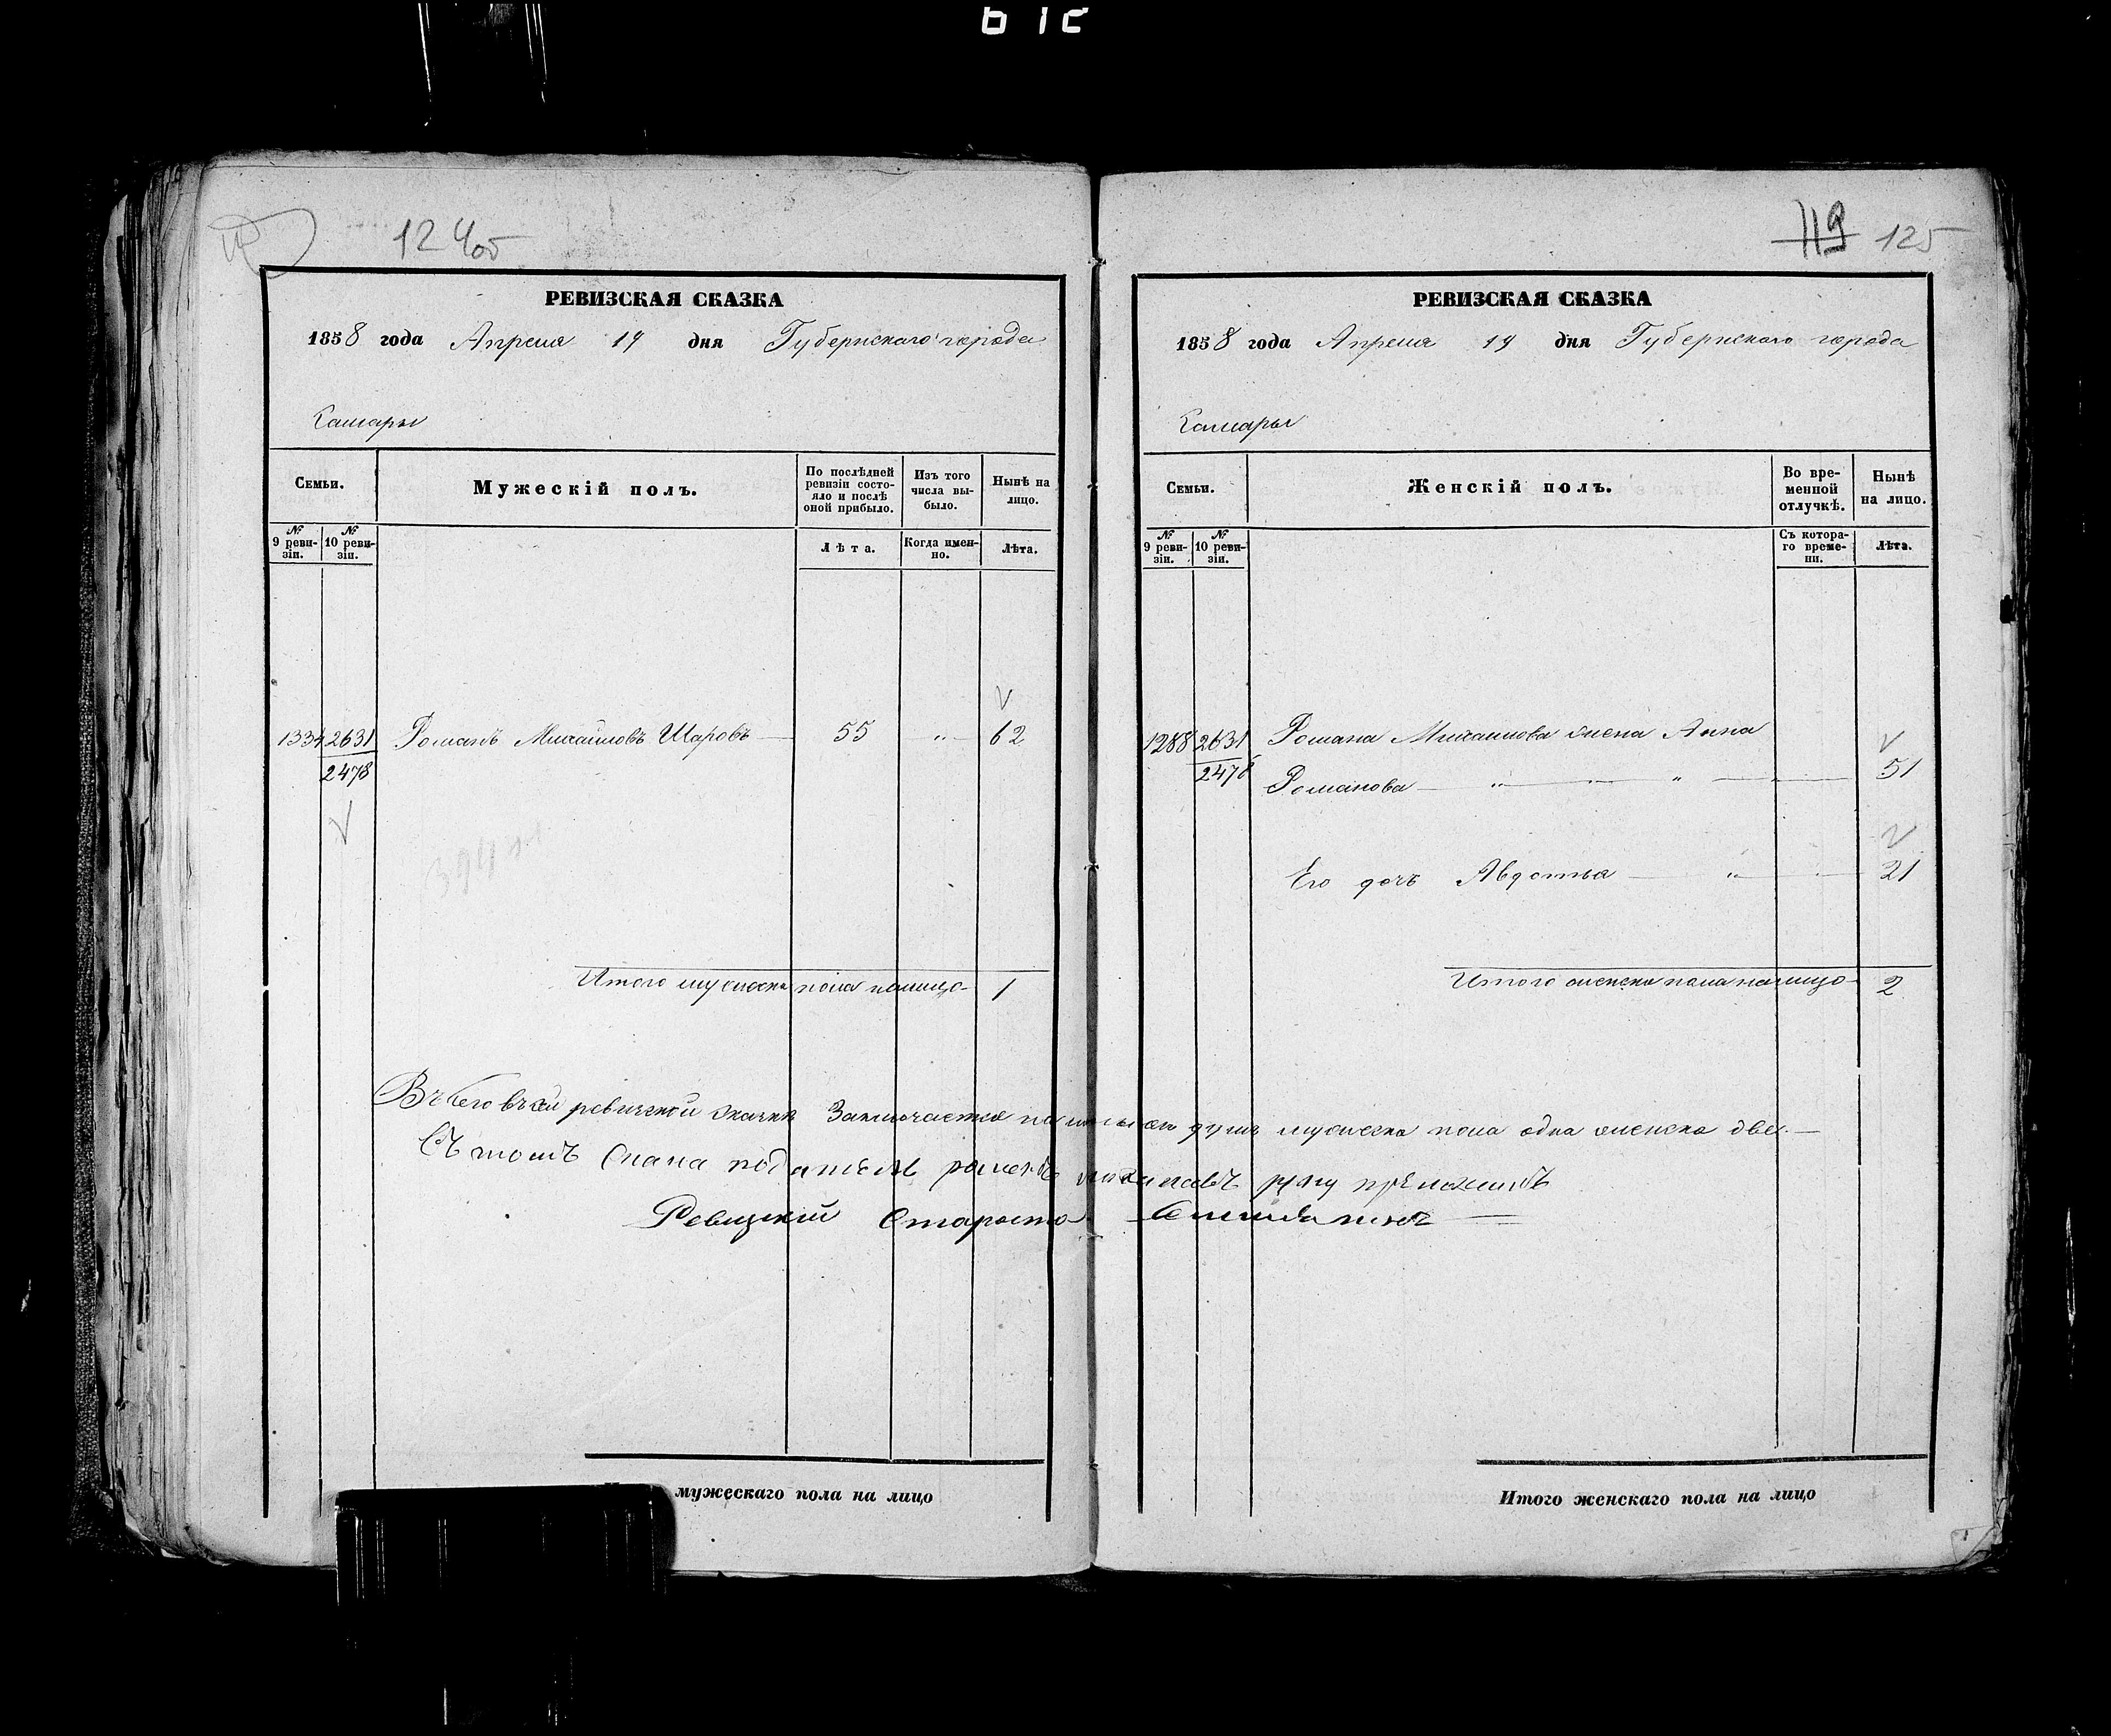 124об
РЕВИЗСКАЯ СКАЗКА
1858 года Апреля 19 дня Губернскаго города
Самары
Семьи.
Мужескій полъ.
По послѣдней ревизіи состояло и послѣ оной прибыло.
Изъ того числа выбыло.
Нынѣ на лицо.
№ 9 ревизіи.
№ 10 ревизіи.
Лѣта.
Когда именно.
Лѣта.
1334 2631 Романъ Михайловъ Шаровъ 55 " 62
2478
Итого мужеска пола налицо 1
мужескаго пола на лицо
119 125
РЕВИЗСКАЯ СКАЗКА
1858 года Апреля 19 дня Губернскаго города
Самары
Семьи.
Женскій полъ.
Во временной отлучкѣ.
Нынѣ на лицо.
№ 9 ревизіи.
№ 10 ревизіи.
Съ котораго времени.
Лѣта.
1288 2631 Романа Михайлова жена Анна
2478 Романова " " " 51
Его дочь Авдотья " " 21
Итого женска пола налицо 2
Всего въ сей ревизской сказке Заключается налицо душъ мужеска пола одна женска две
Ревизкій Староста
Итого женскаго пола на лицо